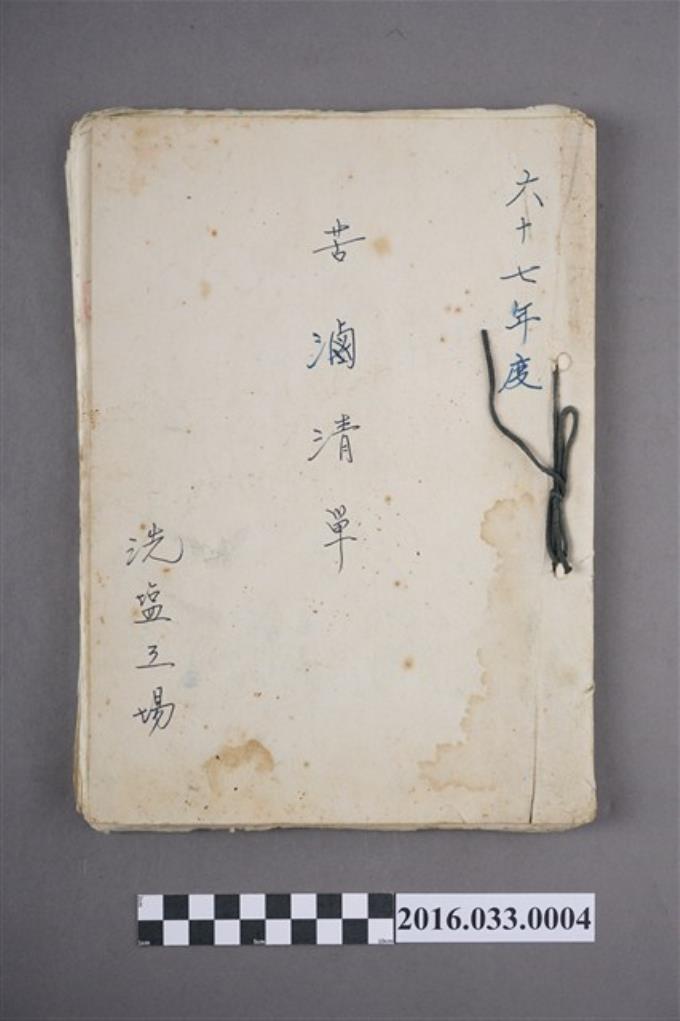 六十七年度
苦滷清單
洗塩工場
2016.033.0004